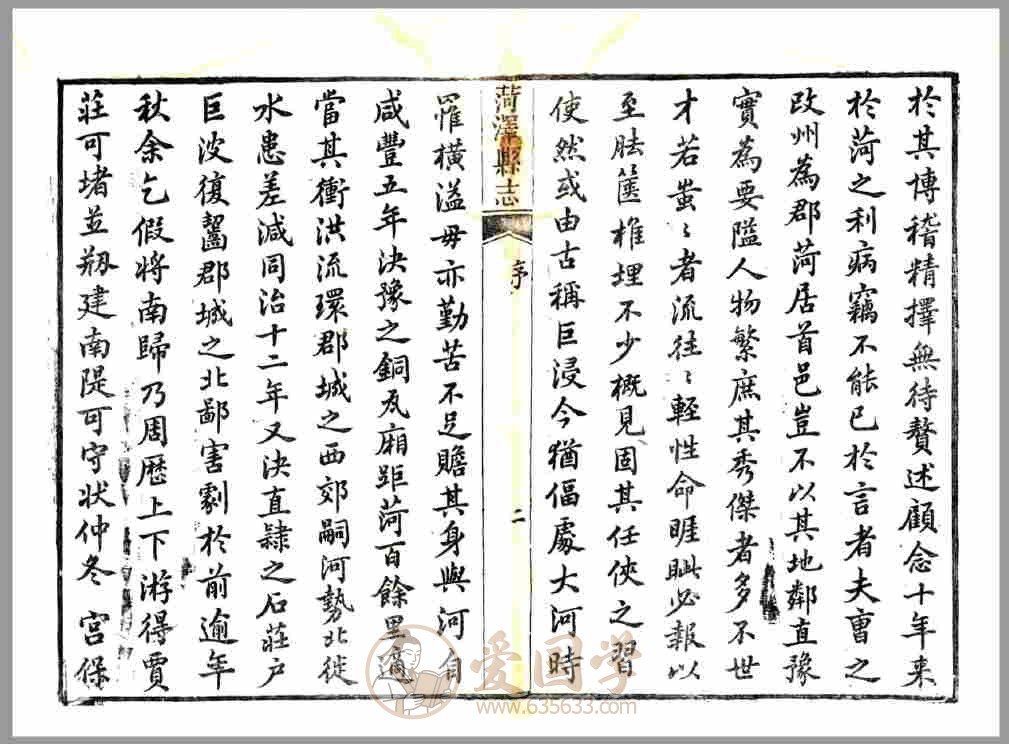 於其博稽精擇無待贅述顧念十年來
於菏之利病竊不能已於言者夫曹之
改州為郡菏居首邑豈不以其地鄰直豫
實為要隘人物繁庶其秀傑者多不世
才若蚩〻者流往〻輕性命睚眦必報以
至胠篋椎埋不少概見固其任俠之習
使然或由古稱巨浸今猶偪處大河時
菏澤縣志
序
二
罹橫溢毋亦勤苦不足贍其身與河自
咸豐五年決豫之銅瓦廂距菏百餘里適
當其衝洪流環郡城之西郊嗣河勢北徙
水患差減同治十二年又決直隸之石莊戶
巨波復齧郡城之北鄙害劇於前逾年
秋余乞假將南歸乃周歷上下游得賈
莊可堵並刱建南隄可守狀仲冬 宮保
爱国学
www.635633.com